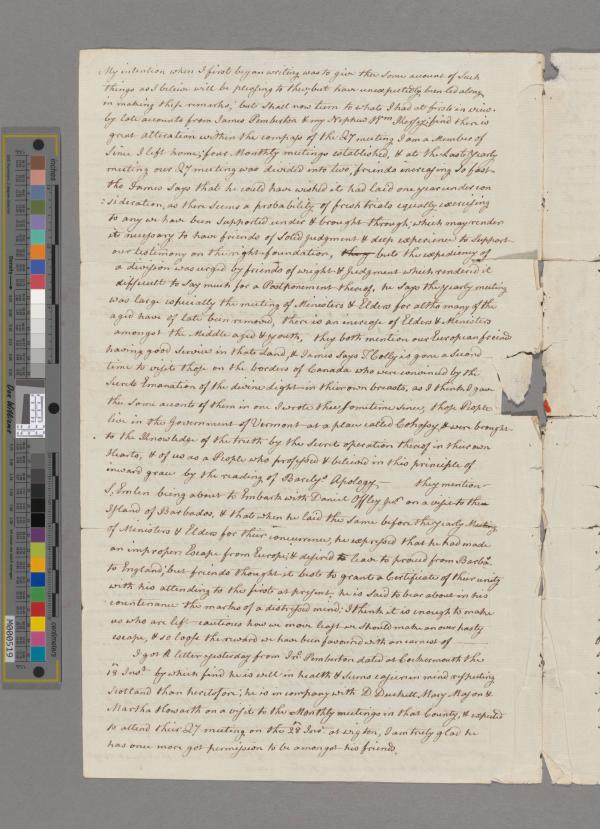 My intention when I first began writing was to give thee some account of such
things as I believe will be pleasing to thee, but have unexpectedly been led along
in making these remarks, but shall now turn to what I had at first in view.
by late accounts from James Pemberton & my Nephew Wm find there is
great alteration within the compass of the Q7 meeting I am a Member of
Since I left home; four Monthly meetings established, & at the Last Yearly
meeting our Q7 meeting was divided into two, friends increasing so fast
tho James Says that he could have wished it had laid one year under con
:sideration, as there Seems a probability of fresh trials equally exercising
to any we have been Supported under & brought through, which may render
it necessary to have friends of Solid Judgment & deep experience to Support
our testimony on the right foundation, but the expediency of
a division was urged by friends of weight & Judgment which rendered it
difficult to Say much for a Postponement thereof, he Says the yearly meeting
was large especially the meeting of Ministers & Elders for altho many of the
aged have of late been removed, there is an increase of Elders & Ministers
amongst the Middle aged & youth, they both mention our European friend
having good Service in that Land, & James Says Z Colly is gone a Second
time to visit those on the borders of Canada who were convinced by the
Secret Emanation of the divine Light in their own breasts, as I think I gave
thee Some account of them in one I wrote thee Sometime Since, those People
live in the Government of Vermont at a place called & were brought
to the Knowledge of the truth by the Secret operation thereof in their own
Hearts, & of us as a People who professed & believed in this principle of
inward grace by the reading of Barclys Apology,— they mention
S. Emlen being about to Embark with Daniel Offley junr on a visit to the
Island of Barbados, & that when he laid the Same before the Yearly Meeting
of Ministers & Elders for their concurrence, he expressed that he had made
an improper Escape from Europe; & desired leave to proceed from Barbs
to England; but friends thought it best to grant a Certificate of their unity
with his attending to the first at present, he is Said to bear about in his
countenance the marks of a distressed mind; I think it is enough to make
us who are left cautious how we move least we should make an over hasty
escape, & so loose the reward we have been favoured with an earnest of
I got a letter yesterday from Jno Pemberton dated at Cockermouth the
18 Inst by which find he is well in health & Seems easier in mind respecting
Scotland than heretofore; he is in company with D Ducket, Mary Mason &
Martha Howarth on a visit to the Monthly meetings in that County, & expected
to attend their Q7 meeting on the 28 Inst at wigton, I am truly glad he
has once more got permission to be amongst his friends.
M000519
inches
centimeters
Don Williams